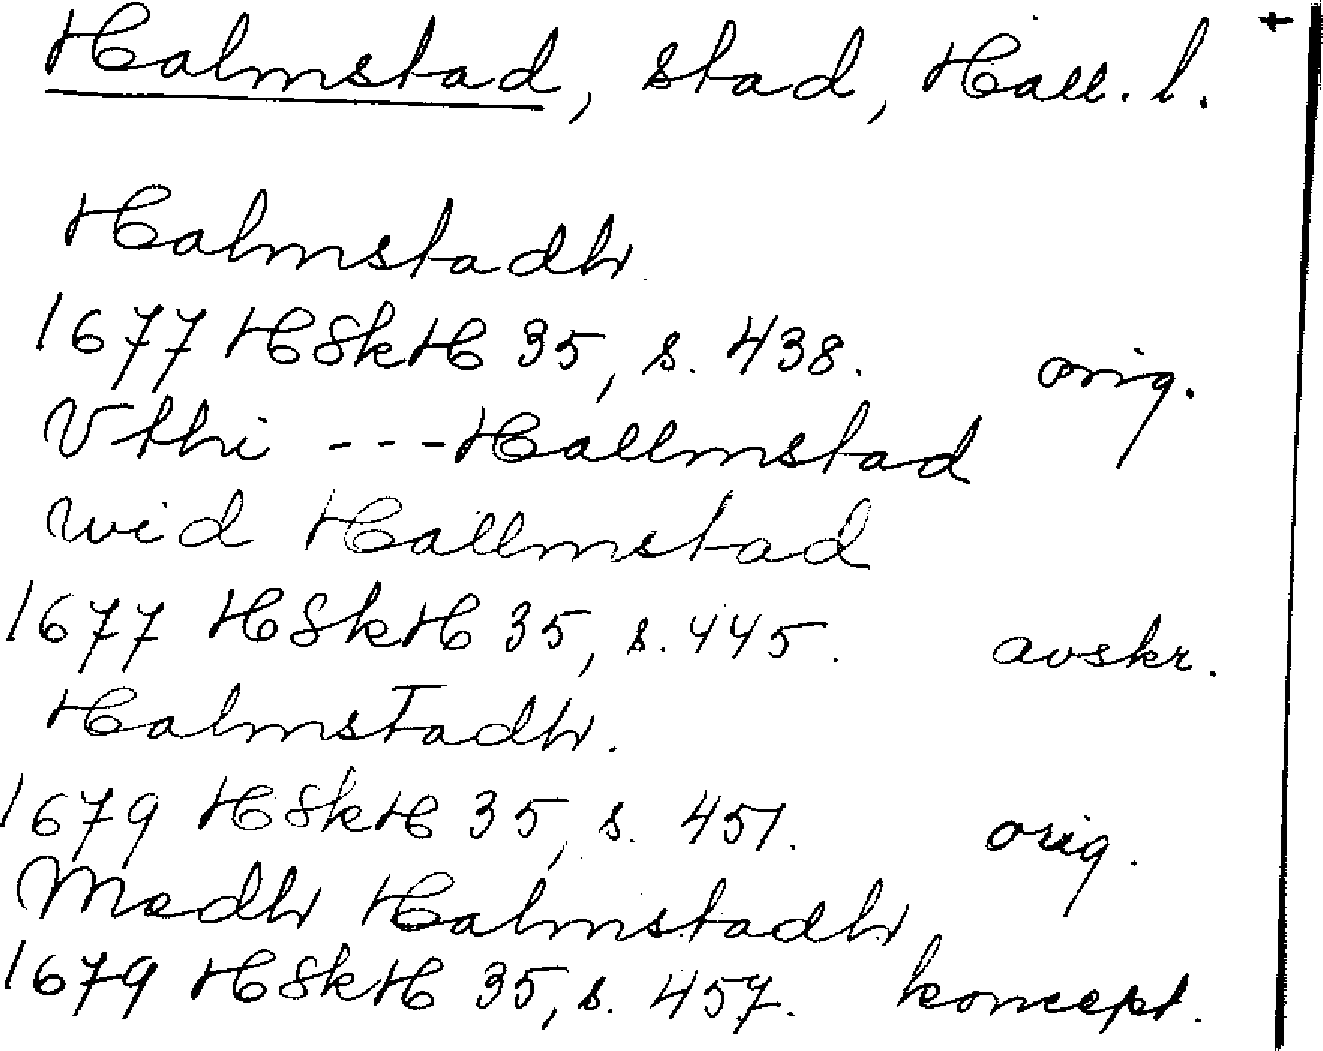 Halmstad, stad, Hall. l. +
Halmstadh
1677 HSkH 35, s. 438. orig.
Vthi --- Hallmstad
wid Hallmstad
1677 HSkH 35, s. 445. avskr.
Halmstadh.
1679 HSkH 35, s. 451. orig.
Medh Halmstadh
1679 HSkH 35, s. 457. koncept.